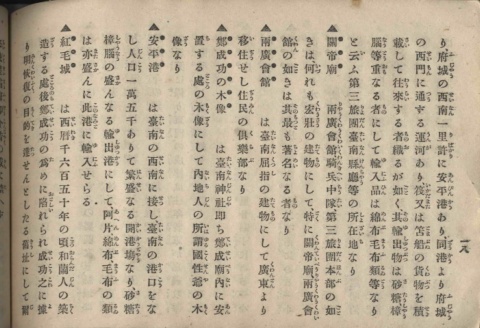 り府城の西南一里許に安平港あり、同港より府城
の西門に通ずる運河あり筏又は笘船の貨物を積
載して往來する者織るが如く其輸出物は砂糖樟
腦等重なる者にして輸入品は綿布毛布類等なり
と云ふ第三旅團臺南縣廳等の所在地なり
▲關帝廟　兩廣會館騎兵中隊第三旅團本部の如
きは何れも宏壯の建物にして特に關帝廟兩廣會
館の如きは其最も著名なる者なり
▲兩廣會館　は臺南屈指の建物にして廣東より
移住せし住民の倶樂部なり
▲鄭成功の木像　は臺南神社即ち鄭成廟内に安
置する處の木像にして内地人の所謂國性爺の木
像なり
▲安平港　は臺南の西南に接し臺南の港口をな
し人口一萬五千ありて繁盛なる開港塲なり砂糖
樟腦の盛んなる輸出港にして阿片綿布毛布の類
は亦盛んに此港に輸入せらる
▲紅毛城　は西暦千六百五十年の頃和蘭人の築
造する處後鄭成功の爲めに陷れられ成功之に據
り明恢復の目的を達せんとしたる舊址にして爾
一八